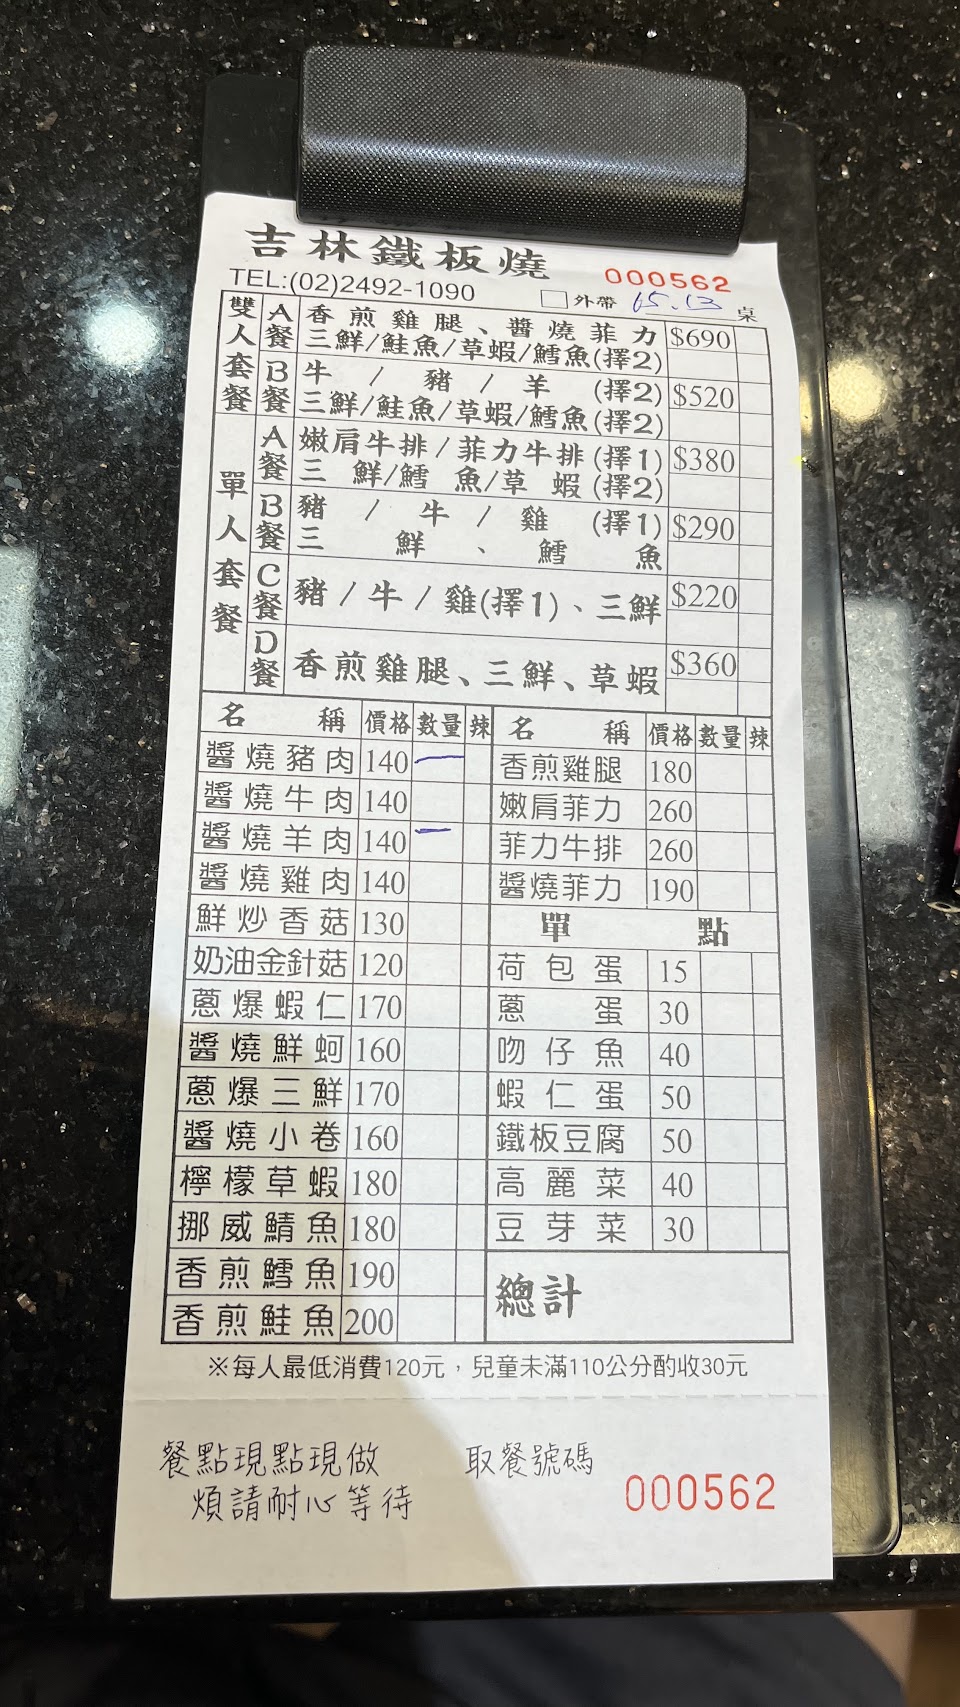 吉林鐵板燒
000562
TEL:(02)2492-1090
外帶 15.13 桌
雙人套餐
A餐 香煎雞腿、醬燒菲力 $690
三鮮/鮭魚/草蝦/鱈魚(擇2)
B餐 牛/豬/羊(擇2) $520
三鮮/鮭魚/草蝦/鱈魚(擇2)
單人套餐
A餐 嫩肩牛排/菲力牛排(擇1) $380
三鮮/鱈魚/草蝦(擇2)
B餐 豬/牛/雞(擇1) $290
三鮮、鱈魚
C餐 豬/牛/雞(擇1)、三鮮 $220
D餐 香煎雞腿、三鮮、草蝦 $360
名稱 價格 數量 辣
醬燒豬肉 140 一
醬燒牛肉 140
醬燒羊肉 140 一
醬燒雞肉 140
鮮炒香菇 130
奶油金針菇 120
蔥爆蝦仁 170
醬燒鮮蚵 160
蔥爆三鮮 170
醬燒小卷 160
檸檬草蝦 180
挪威鯖魚 180
香煎鱈魚 190
香煎鮭魚 200
名稱 價格 數量 辣
香煎雞腿 180
嫩肩菲力 260
菲力牛排 260
醬燒菲力 190
單點
荷包蛋 15
蔥蛋 30
吻仔魚 40
蝦仁蛋 50
鐵板豆腐 50
高麗菜 40
豆芽菜 30
總計
※每人最低消費120元，兒童未滿110公分酌收30元
餐點現點現做
煩請耐心等待
取餐號碼
000562